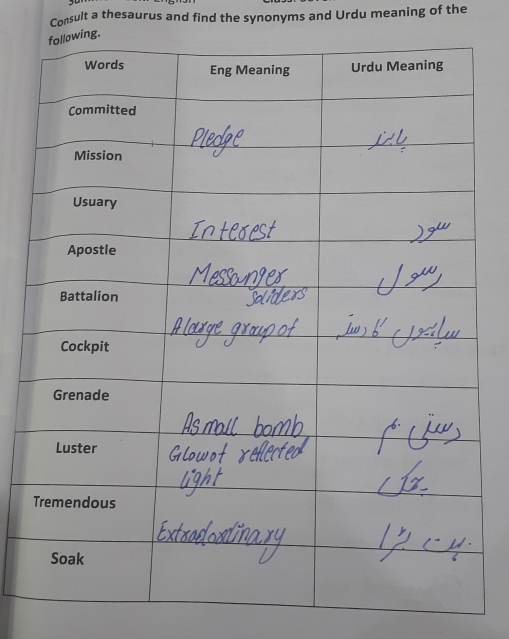 Consult a thesaurus and find the synonyms and Urdu meaning of the
following.
Words Eng Meaning Urdu Meaning
Committed
Pledge پابند
Mission
Usuary
Interest سود
Apostle
Messanger رسول
Battalion soliders
A large group of سپاہیوں کا دستہ
Cockpit
Grenade
A small bomb دستی بم
Luster
Glow of reflected
light چمک
Tremendous
Extraodordinary بہت بڑا
Soak